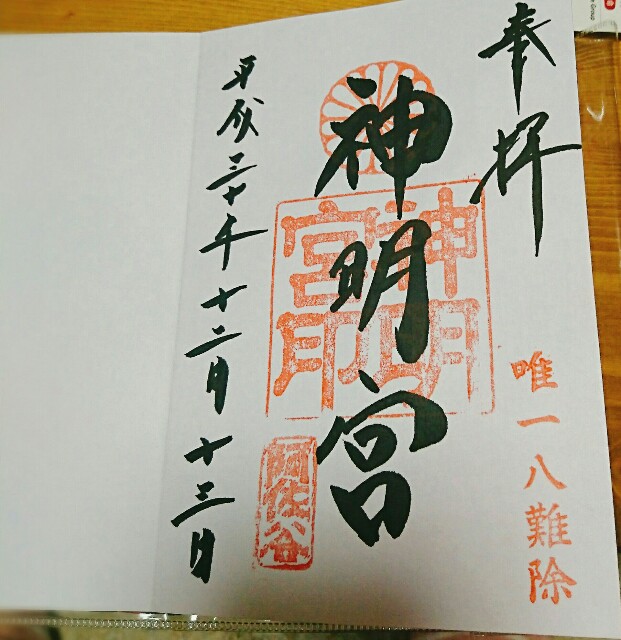 奉拝
唯一八難除
神明宮
神明宮印
阿佐谷
平成三十年十二月十三日